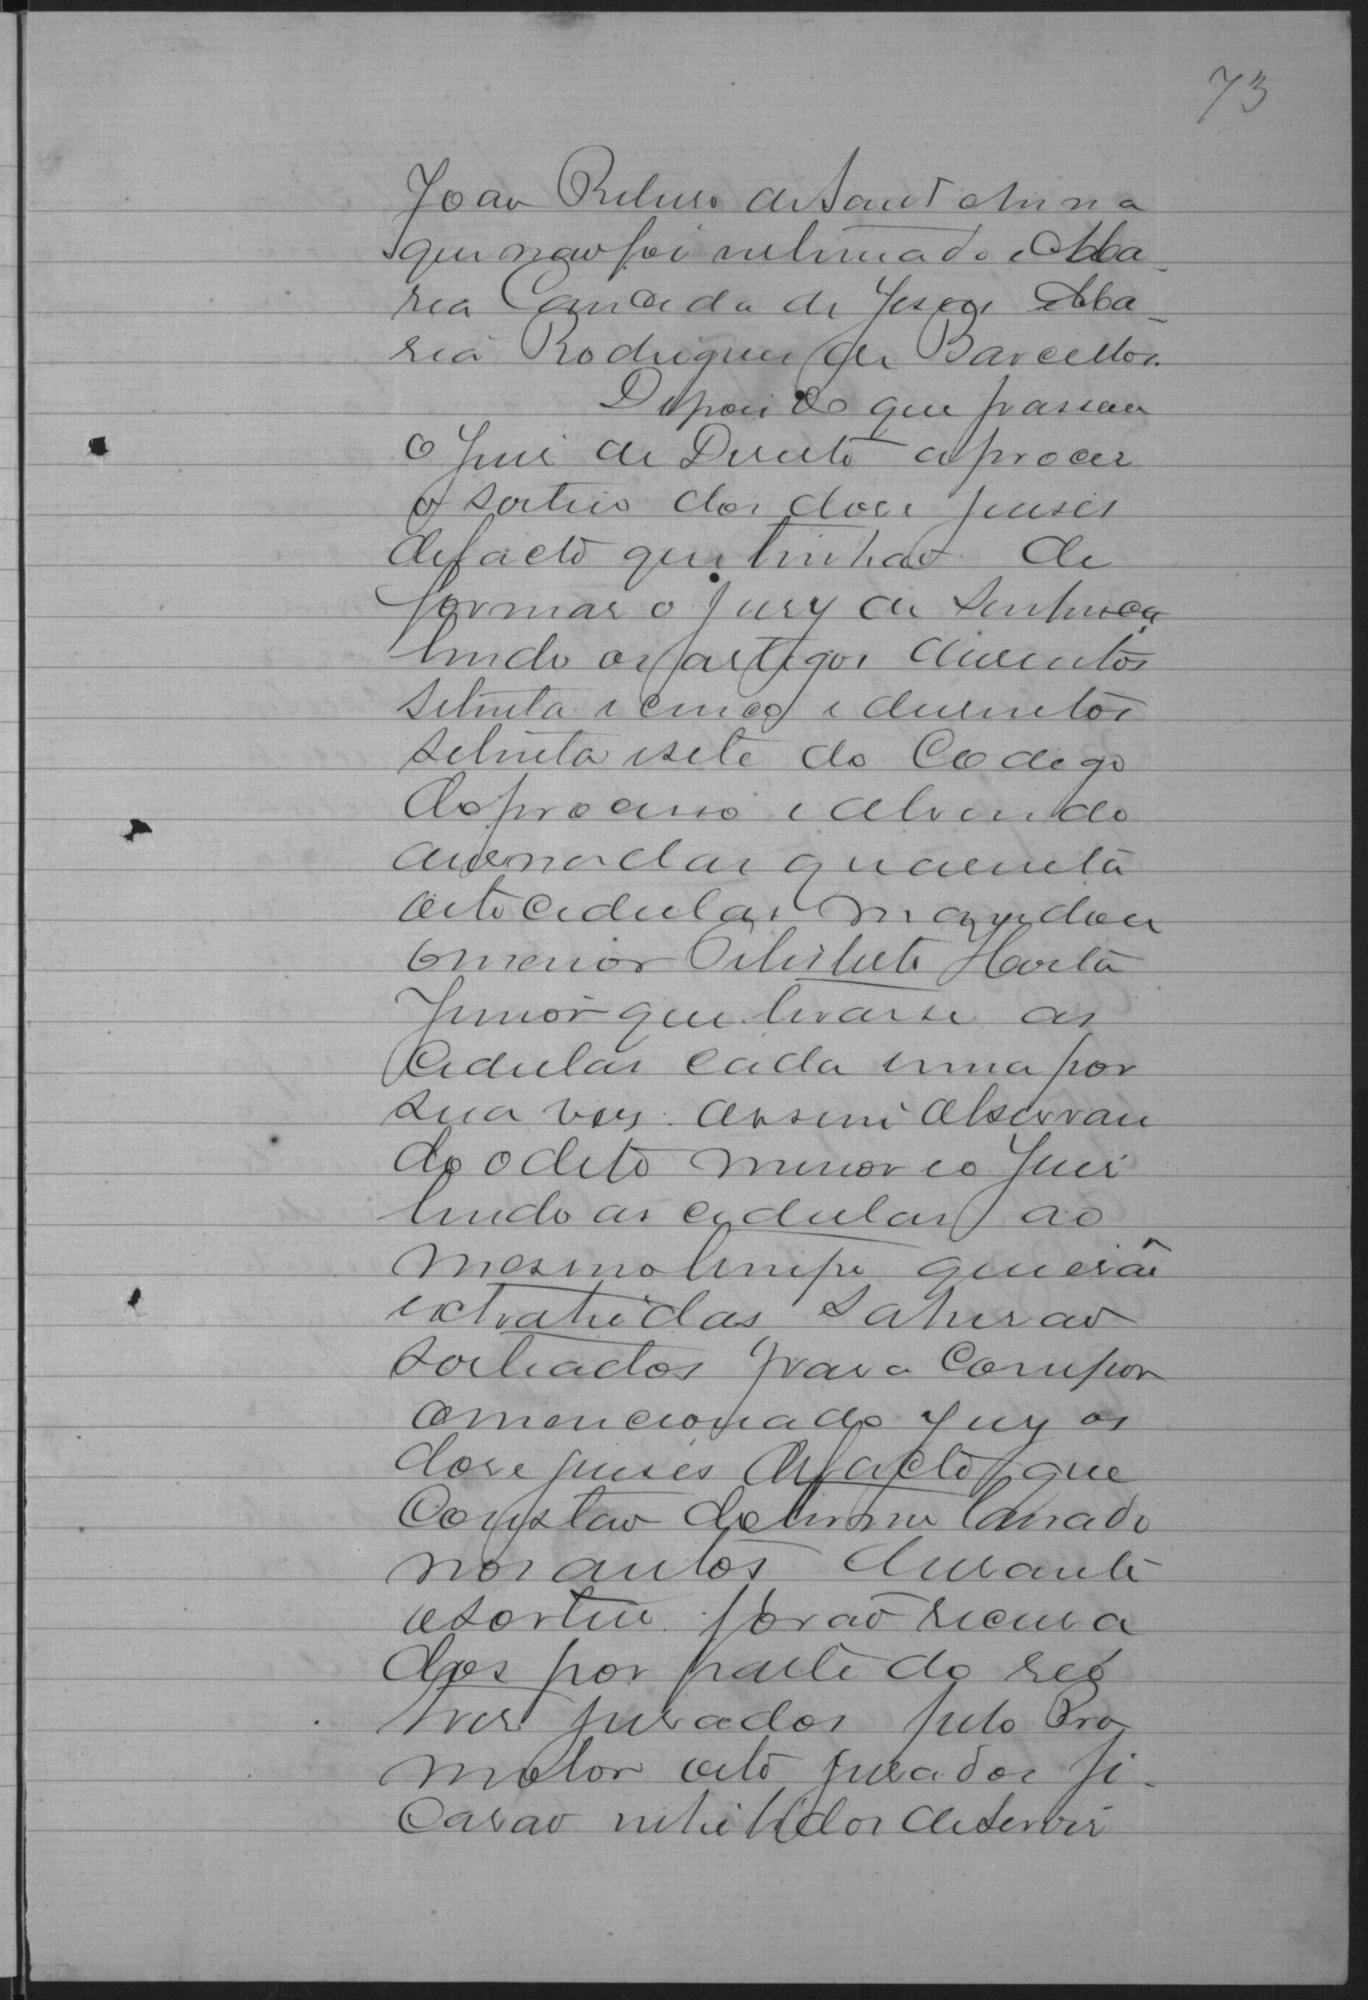 73
João Ribeiro de Sant Anna
que não foi intimado e Ma-
ria Candida de Jesus Ma-
ria Rodrigues de Barcellos.
Depois do que passou
o Juis de Direito a procer
o sorteio dos dose juises
de facto que tinhão de
formar o Jury de Sentença
lendo os artigos dusentos
setenta e cinco e dusentos
setenta e sete do Codego
do processo e abrindo
a urna das quarenta
oito cedulas mandou
o menor Felisberto Horta
Junior que tirasse as
cedulas cada uma por
sua ves. assim observan
do o dito menor e o Juis
lendo as cedulas ao
mesmo tempo que erão
extrahidas sahirão
sorteados para compor
o mencionado Jury os
dose juises de facto que
constão do termo lavrado
nos autos durante
o sorteio forão recusa
dos por parte do reo
tres jurados pelo Pro
motor oito jurados fi-
carão inhibidos de servir